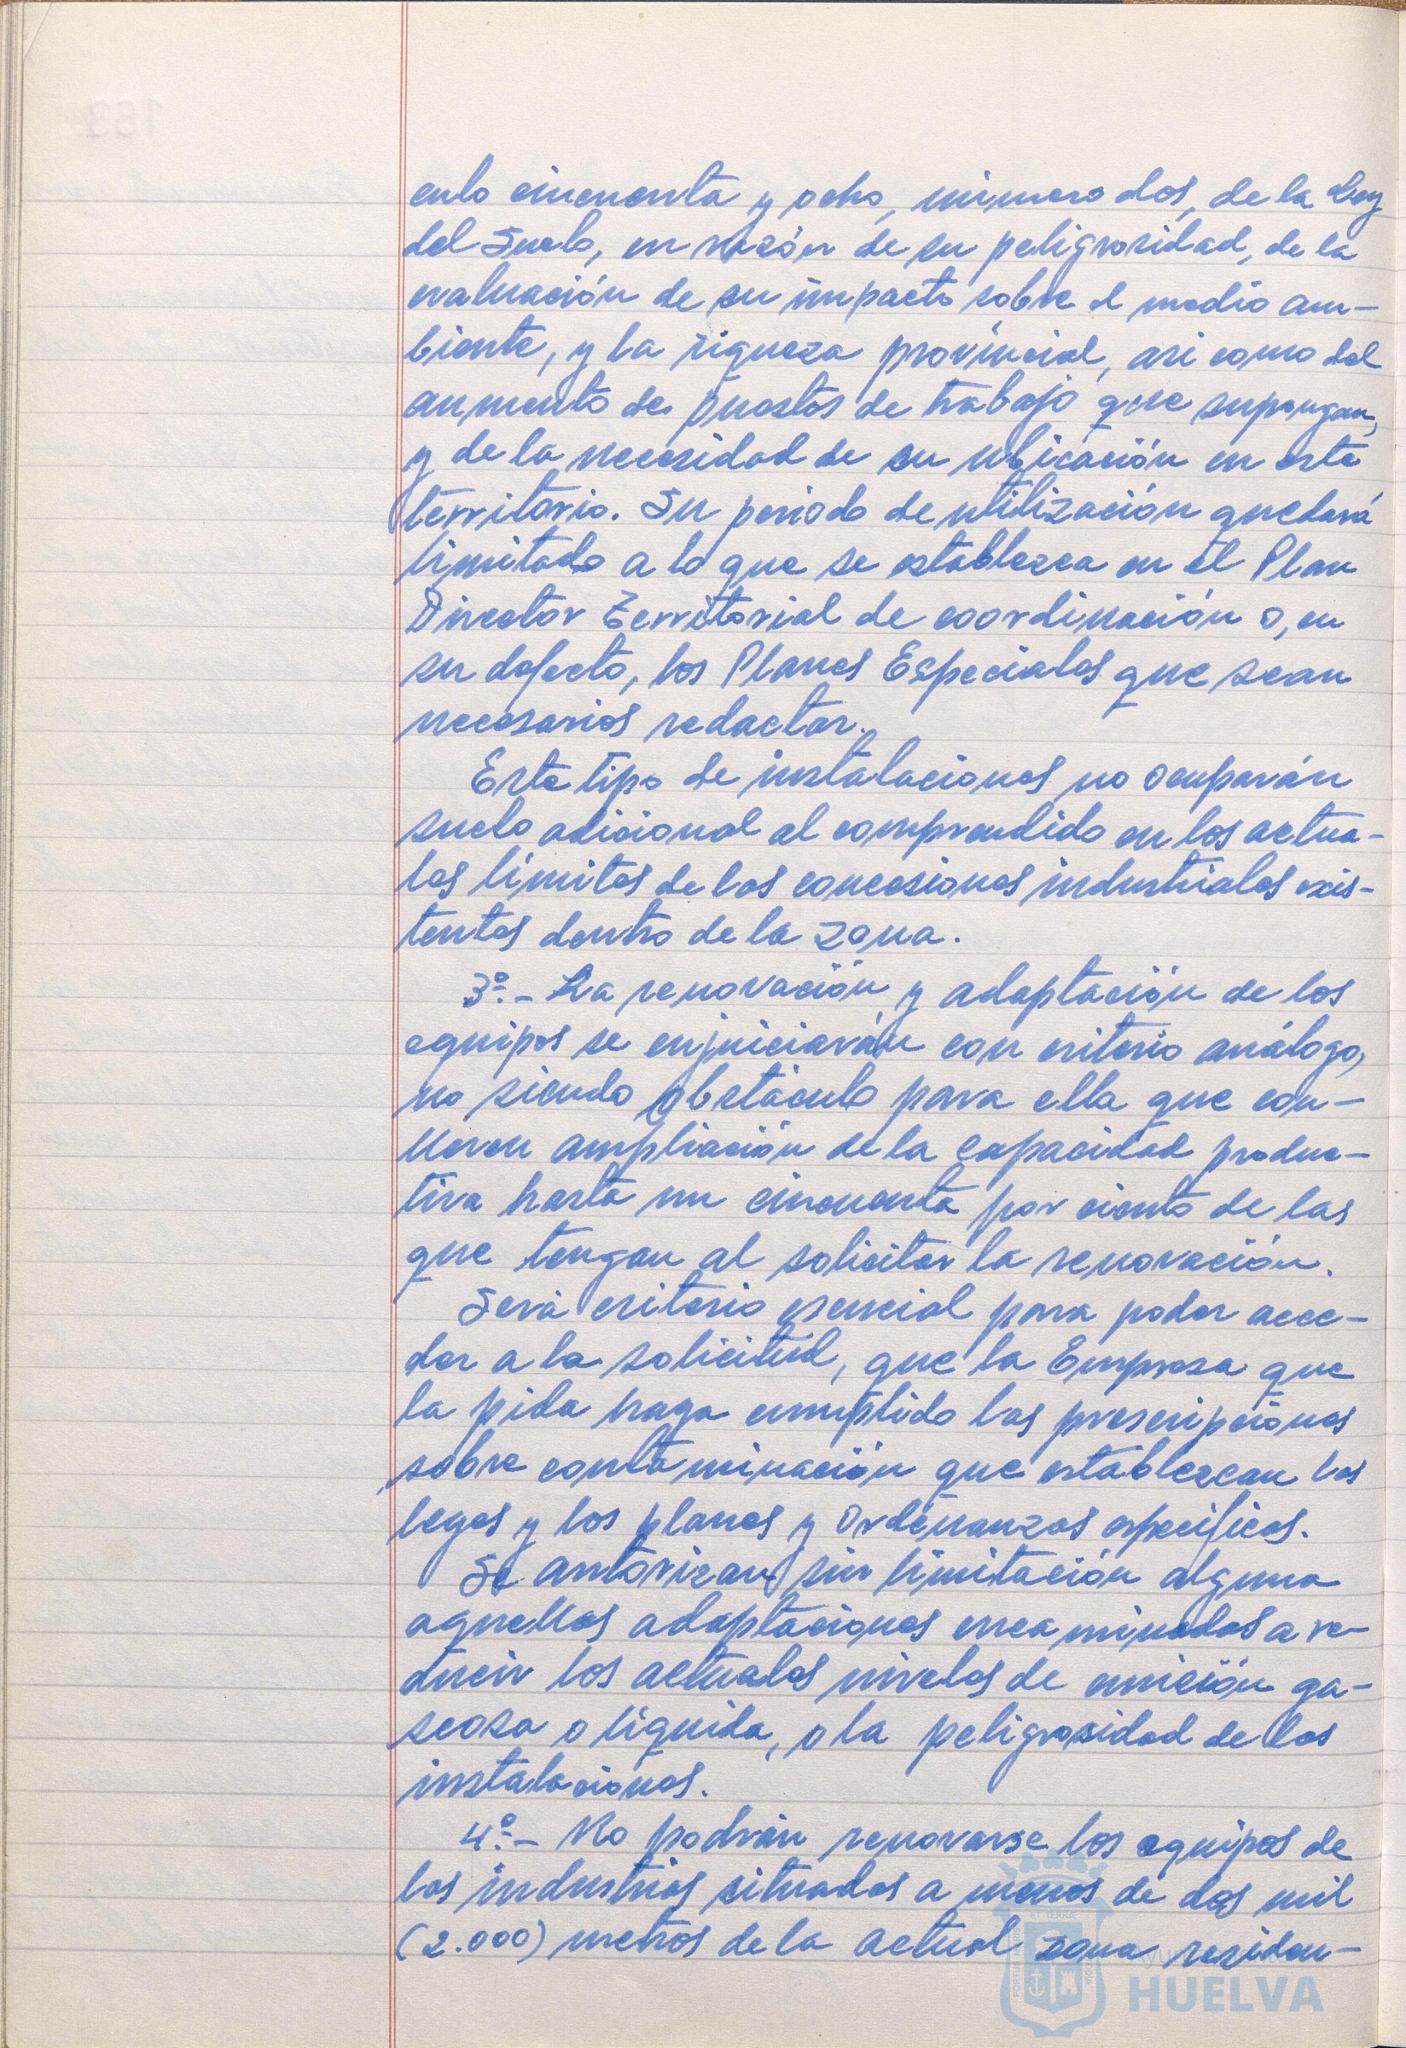 culo cincuenta y ocho, número dos, de la Ley
del Suelo, en razón de su peligrosidad, de la
evaluación de su impacto sobre el medio am-
biente, y la riqueza provincial, asi como del
aumento de puestos de trabajo que supongan,
y de la necesidad de su ubicación en este
territorio. Su periodo de utilización quedará
limitado a lo que se establezca en el Plan
Director Territorial de coordinación o, en
su defecto, los Planes Especiales que sean
necesarios redactar.
Este tipo de instalaciones no ocuparán
suelo adicional al comprendido en los actua-
les límites de las concesiones industriales exis-
tentes dentro de la zona.
3º.- La renovación y adaptación de los
equipos se enjuiciarán con criterio análogo,
no siendo obstáculo para ella que con-
lleven ampliación de la capacidad produc-
tiva hasta un cincuenta por ciento de las
que tengan al solicitar la renovación.
Será criterio esencial para poder acce-
der a la solicitud, que la Empresa que
la pida haga cumplido las prescripciones
sobre contaminación que establezcan las
leyes y los planes y Ordenanzas específicos.
Se autorizan sin limitación alguna
aquellas adaptaciones encaminadas a re-
ducir los actuales niveles de emisión ga-
seosa o líquida, o la peligrosidad de las
instalaciones.
4º.- No podrán renovarse los equipos de
las industrias situadas a menos de dos mil
(2.000) metros de la actual zona residen-
HUELVA